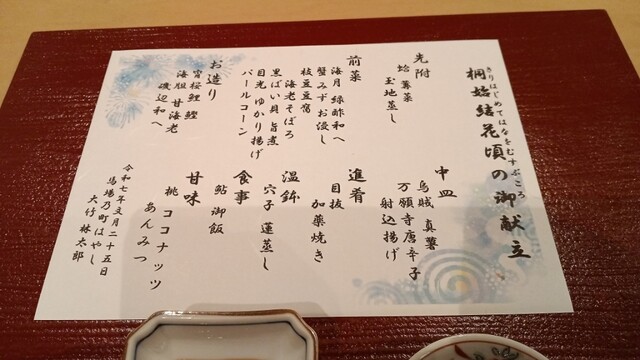 きりはじめてはなをむすぶころ
桐始結花頃の御献立
先附
蛤 蓴菜
玉地蒸し
前菜
海月 緑酢和へ
蟹みずお浸し
枝豆豆腐
海老そぼろ
黒ばい貝 旨煮
目光 ゆかり揚げ
パールコーン
お造り
鰹
海胆 甘海老
磯辺和へ
中皿
烏賊 真薯
万願寺唐辛子
射込揚げ
進肴
目抜
加薬焼き
温鉢
穴子 蓮蒸し
食事
鮎御飯
甘味
桃 ココナッツ
あんみつ
令和七年文月二十五日
馬場乃町はやし
大竹 林太郎